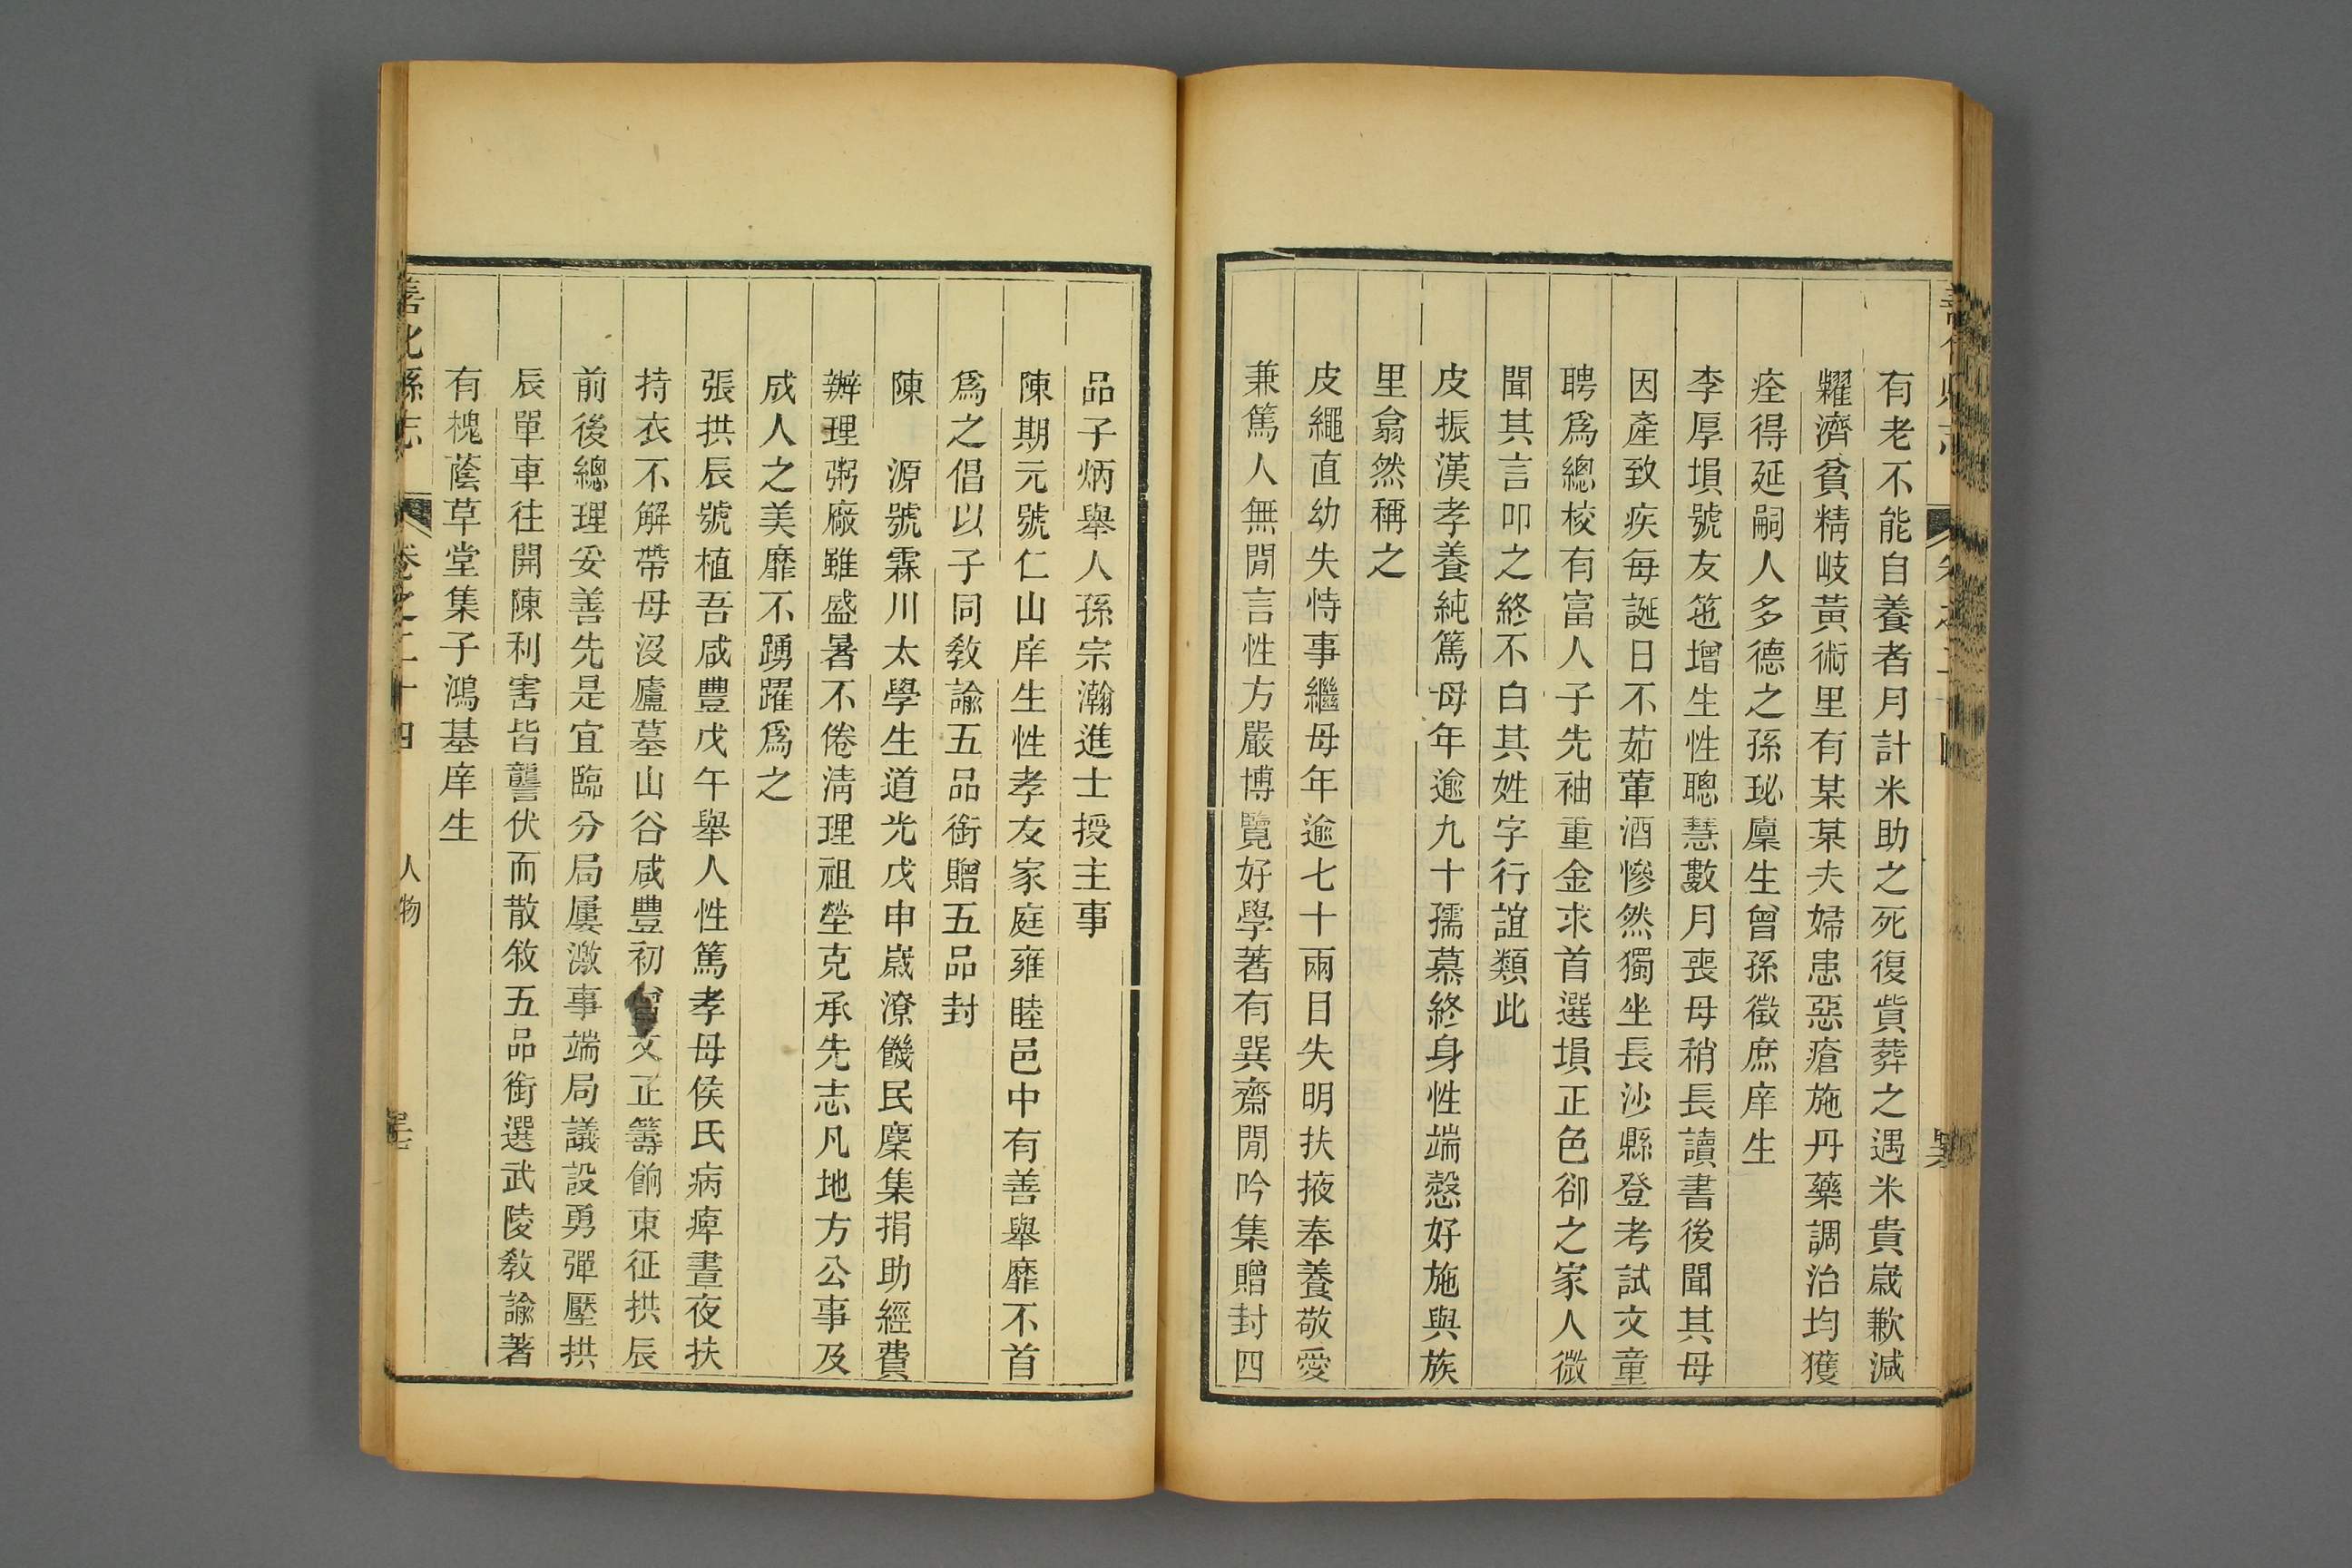 有老不能自養者月計米助之死復貲葬之遇米貴歲歉減
糶濟貧精岐黃術里有某某夫婦患惡瘡施丹藥調治均獲
痊得延嗣人多德之孫珌廩生曾孫徵庶庠生
李厚塤號友箎增生性聰慧數月喪母稍長讀書後聞其母
因產致疾每誕日不茹葷酒慘然獨坐長沙縣登考試文童
聘爲總校有富人子先袖重金求首選塤正色卻之家人微
聞其言叩之終不白其姓字行誼類此
皮振漢孝養純篤母年逾九十孺慕終身性端慤好施與族
里翕然稱之
皮繩直幼失恃事繼母年逾七十兩目失明扶掖奉養敬愛
兼篤人無閒言性方嚴博覽好學著有巽齋閒吟集贈封四
品子炳舉人孫宗瀚進士授主事
陳期元號仁山庠生性孝友家庭雍睦邑中有善舉靡不首
爲之倡以子同敎諭五品銜贈五品封
陳　源號霖川太學生道光戊申歲潦饑民麇集捐助經費
辦理粥廠雖盛暑不倦淸理祖塋克承先志凡地方公事及
成人之美靡不踴躍爲之
張拱辰號植吾咸豐戊午舉人性篤孝母侯氏病痺晝夜扶
持衣不解帶母沒廬墓山谷咸豐初曾文正籌餉東征拱辰
前後總理妥善先是宜臨分局屢激事端局議設勇彈壓拱
辰單車往開陳利害皆讋伏而散敘五品銜選武陵敎諭著
有槐蔭草堂集子鴻基庠生
善化縣志
卷之二十四
人物